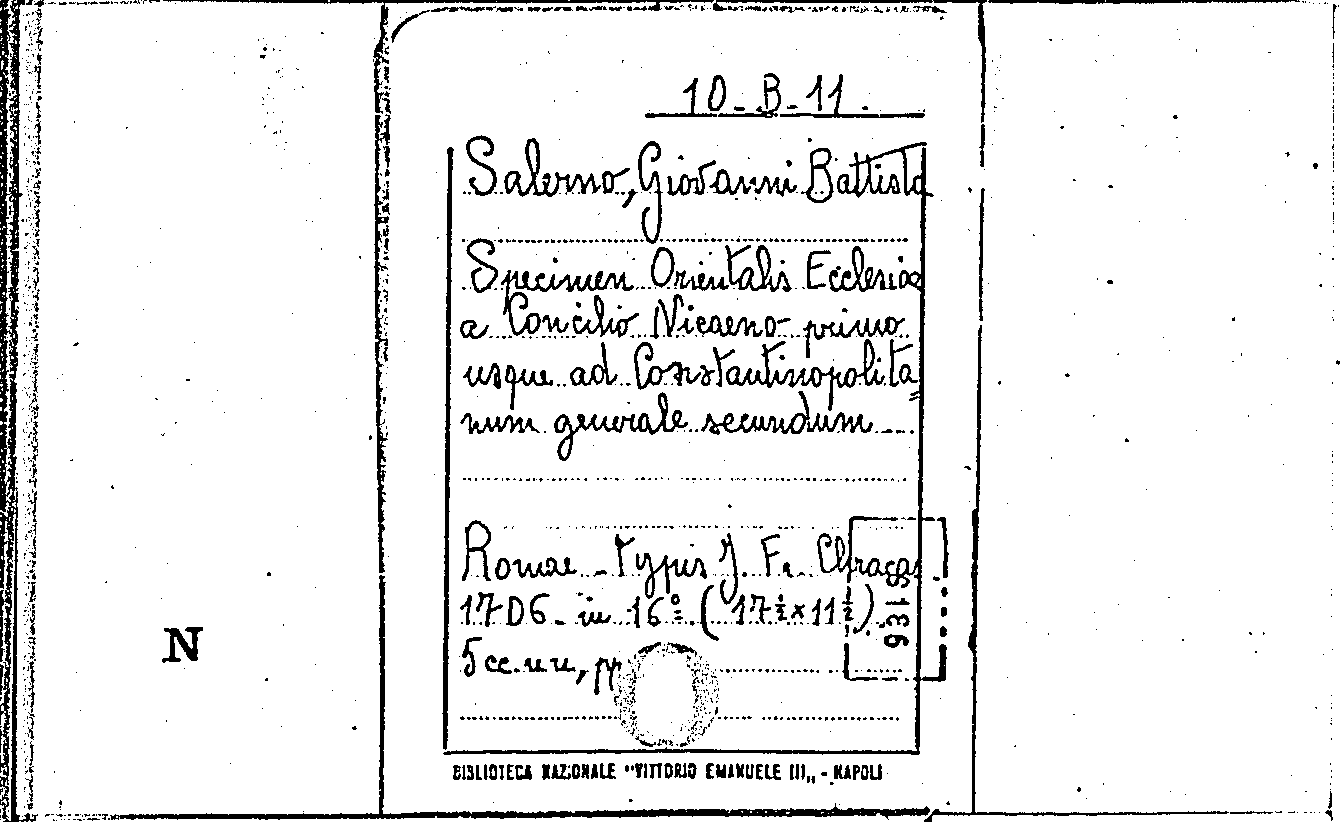 10-B-11.
Salerno, Giovanni Battista
Specimen Orientalis Ecclesiae
a Concilio Nicaeno primo
usque ad Constantinopolita=
num generale secundum...
Romae - typis J. F. Chracas
1706 - in 16º (17½ x 11½).
5 cc. nn, pp
9315
N
BIBLIOTECA NAZIONALE "VITTORIO EMANUELE III„ - NAPOLI